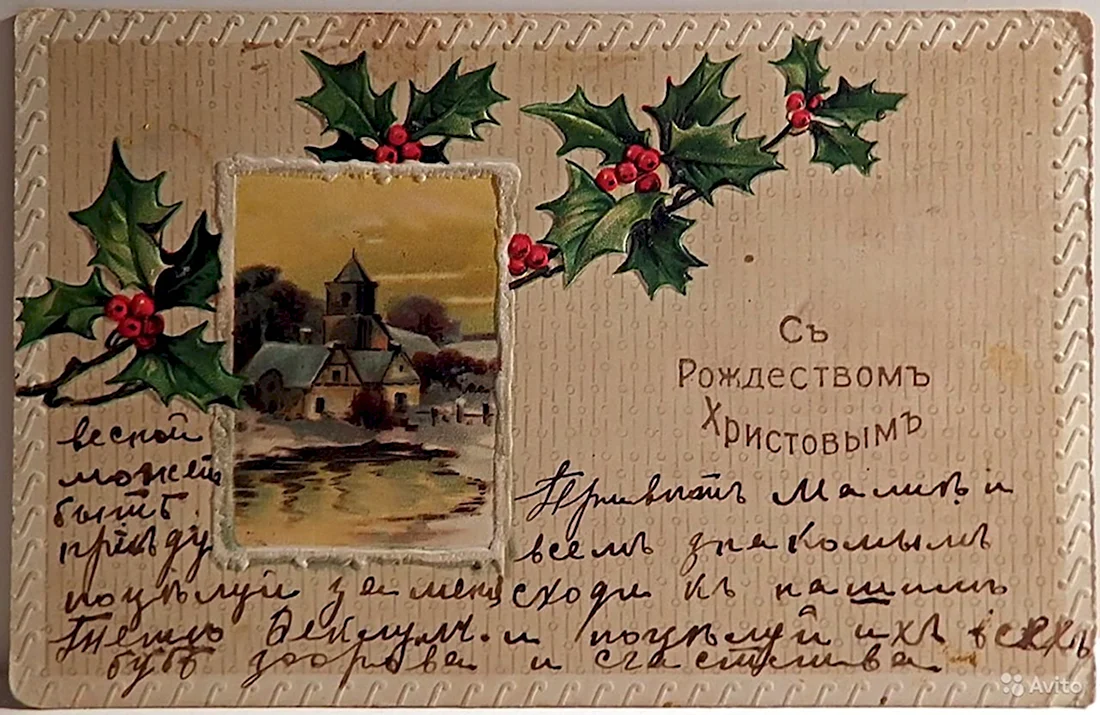 Съ
Рождествомъ
Христовымъ
весной
можетъ
быть
приѣду
Привѣтъ Малинѣ и
всемъ знакомымъ
поцѣлуй за меня сходи къ нашимъ
поцѣлуй ихъ всехъ
будь здорова и счастлива
Avito